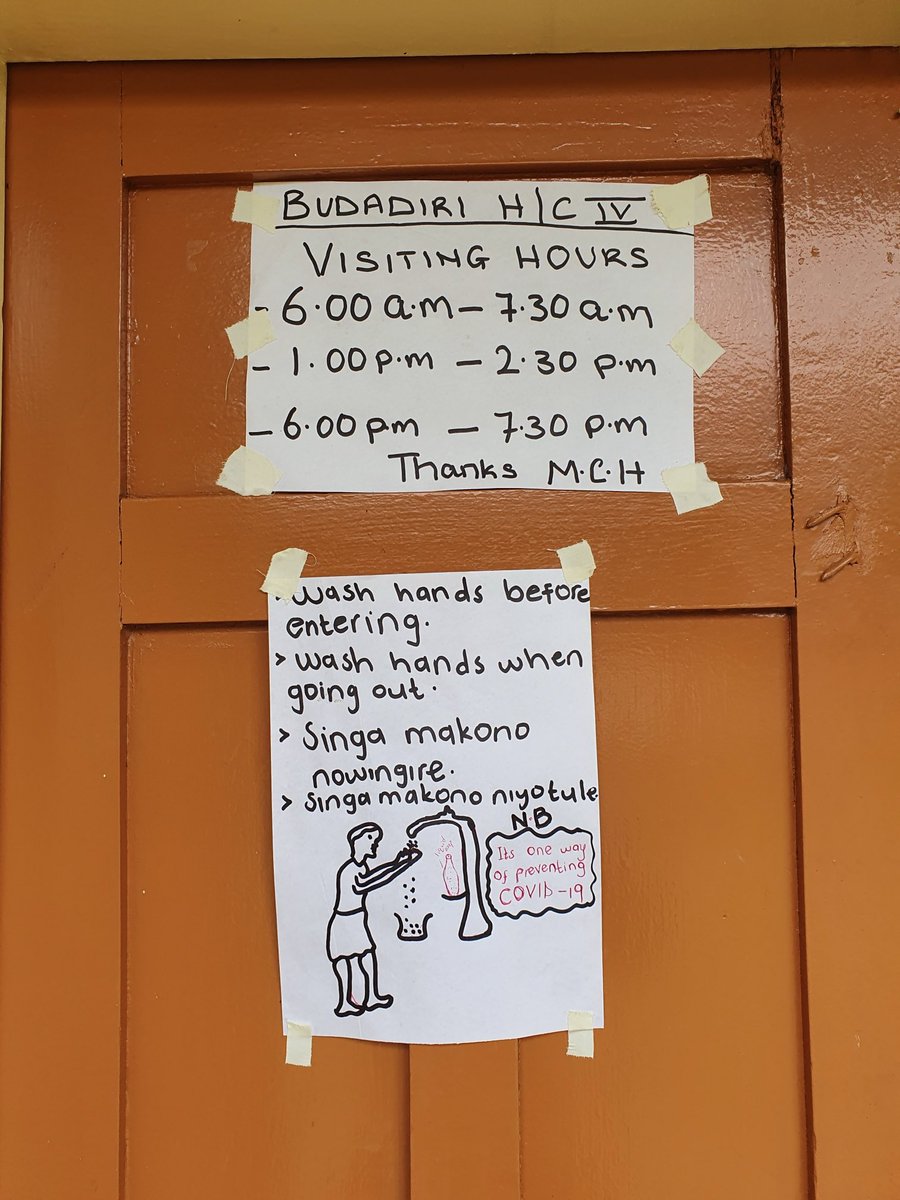 BUDADIRI H/C IV
VISITING HOURS
- 6.00 a.m - 7.30 a.m
- 1.00 p.m - 2.30 p.m
- 6.00 pm - 7.30 p.m
Thanks M.C.H
> wash hands before
entering.
> wash hands when
going out.
> Singa makono
nowingire.
> Singa makono niyotule
N.B
Its one way
of preventing
COVID-19